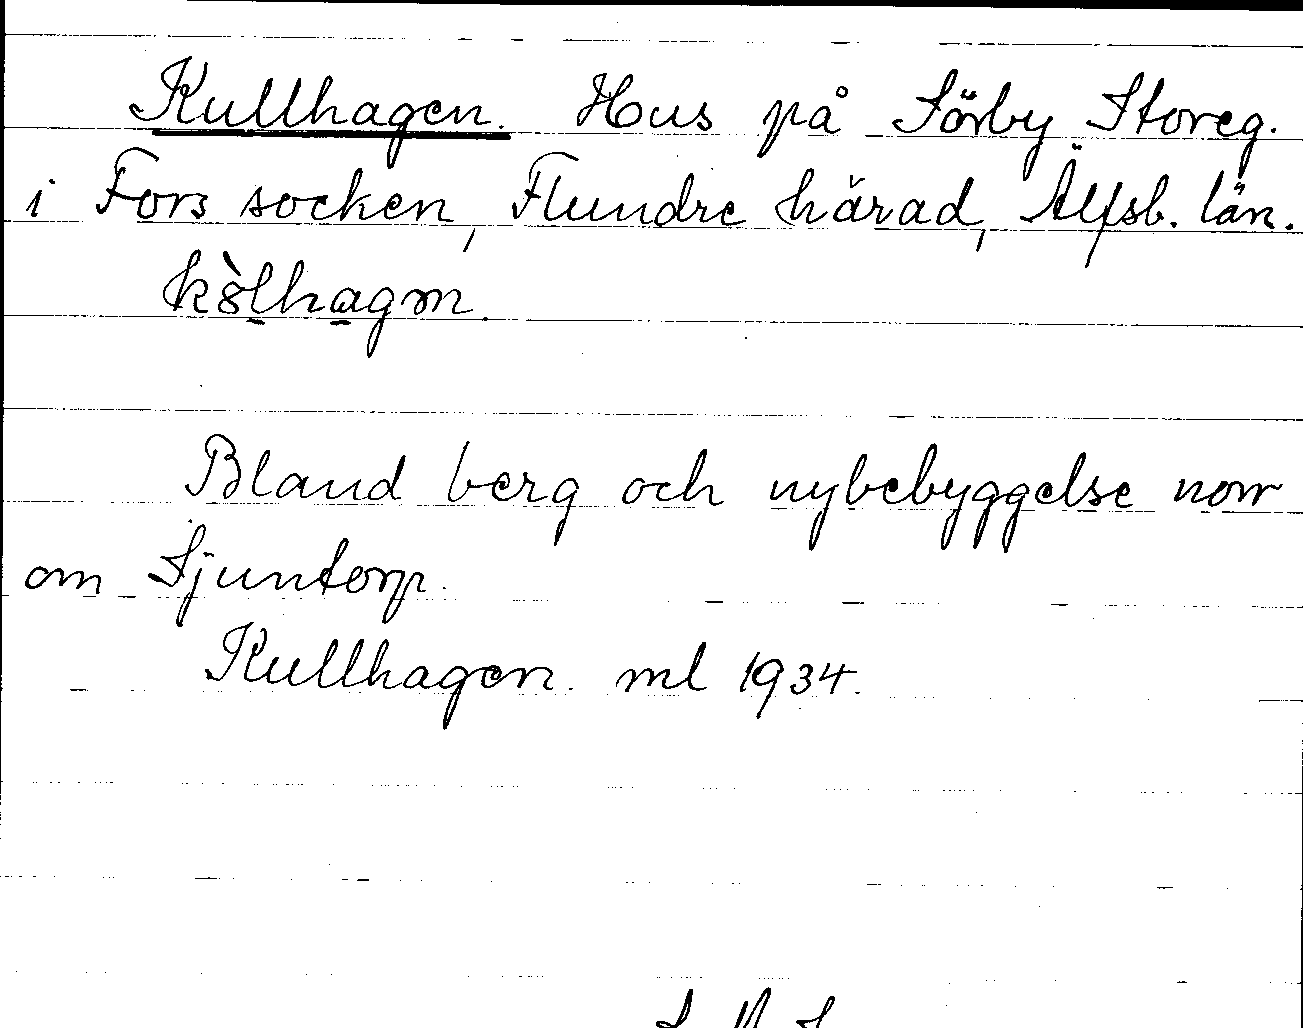 Kullhagen. Hus på Sörby Storeg.
i Fors socken, Flundre härad, Älfsb. län.
Bland berg och nybebyggelse norr
om Sjuntorp.
Kullhagen. ml 1934.